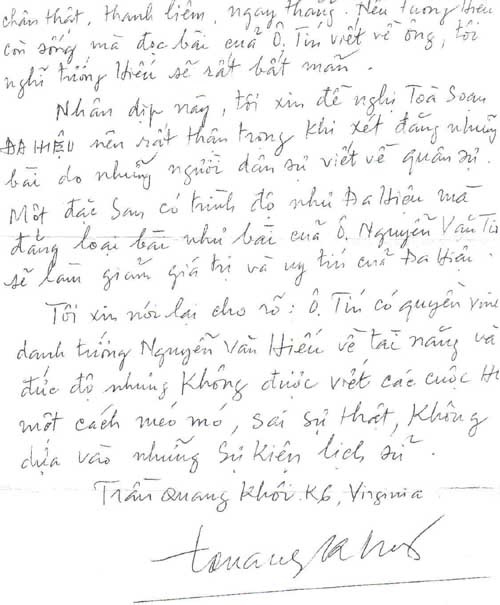 chân thật, thanh liêm, ngay thẳng. Nếu tướng Hiếu
còn sống mà đọc bài của Ô. Tín viết về ông, tôi
nghĩ tướng Hiếu sẽ rất bất mãn.
Nhân dịp này, tôi xin đề nghị Toà Soạn
ĐA HIỆU nên rất thận trọng khi xét đăng những
bài do những người dân sự viết về quân sự.
Một đặc san có trình độ như Đa Hiệu mà
đăng loại bài như bài của Ô. Nguyễn Văn Tín
sẽ làm giảm giá trị và uy tín của Đa Hiệu.
Tôi xin nói lại cho rõ: Ô. Tín có quyền vinh
danh tướng Nguyễn Văn Hiếu về tài năng và
đức độ nhưng không được viết các cuộc H
một cách méo mó, sai sự thật, không
dựa vào những sự kiện lịch sử.
Trần Quang Khôi K6, Virginia